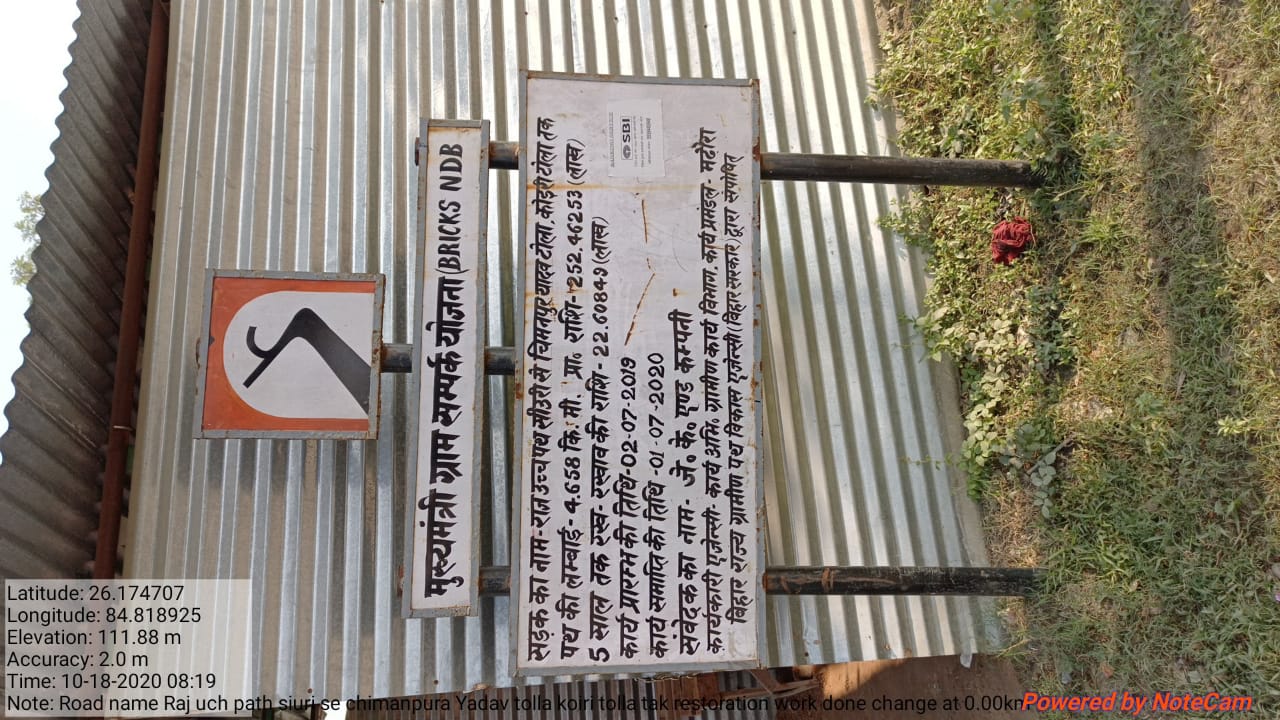 मुख्यमंत्री ग्राम सम्पर्क योजना (BRICKS NDB
सड़क का नाम - राज उच्च पथ सीउरी से चिमनपुर यादव टोला, कोइरी टोला तक
पथ की लम्बाई - 4.658 कि. मी. प्रा. राशि - 252.46253 (लाख)
5 साल तक रख-रखाव की राशि - 22.60849 (लाख)
कार्य प्रारम्भ की तिथि - 02-07-2019
कार्य समाप्ति की तिथि - 01-07-2020
संवेदक का नाम - जे० के० एण्ड कम्पनी
कार्यकारी एजेन्सी - कार्य अभि. ग्रामीण कार्य विभाग, कार्य प्रमंडल - मढ़ौरा
बिहार राज्य ग्रामीण पथ विकास एजेन्सी (बिहार सरकार) द्वारा
SBI
Latitude: 26.174707
Longitude: 84.818925
Elevation: 111.88 m
Accuracy: 2.0 m
Time: 10-18-2020 08:19
Note: Road name Raj uch path siuri se chimanpura Yadav tolla koiri tolla tak restoration work done change at 0.00km
Powered by NoteCam